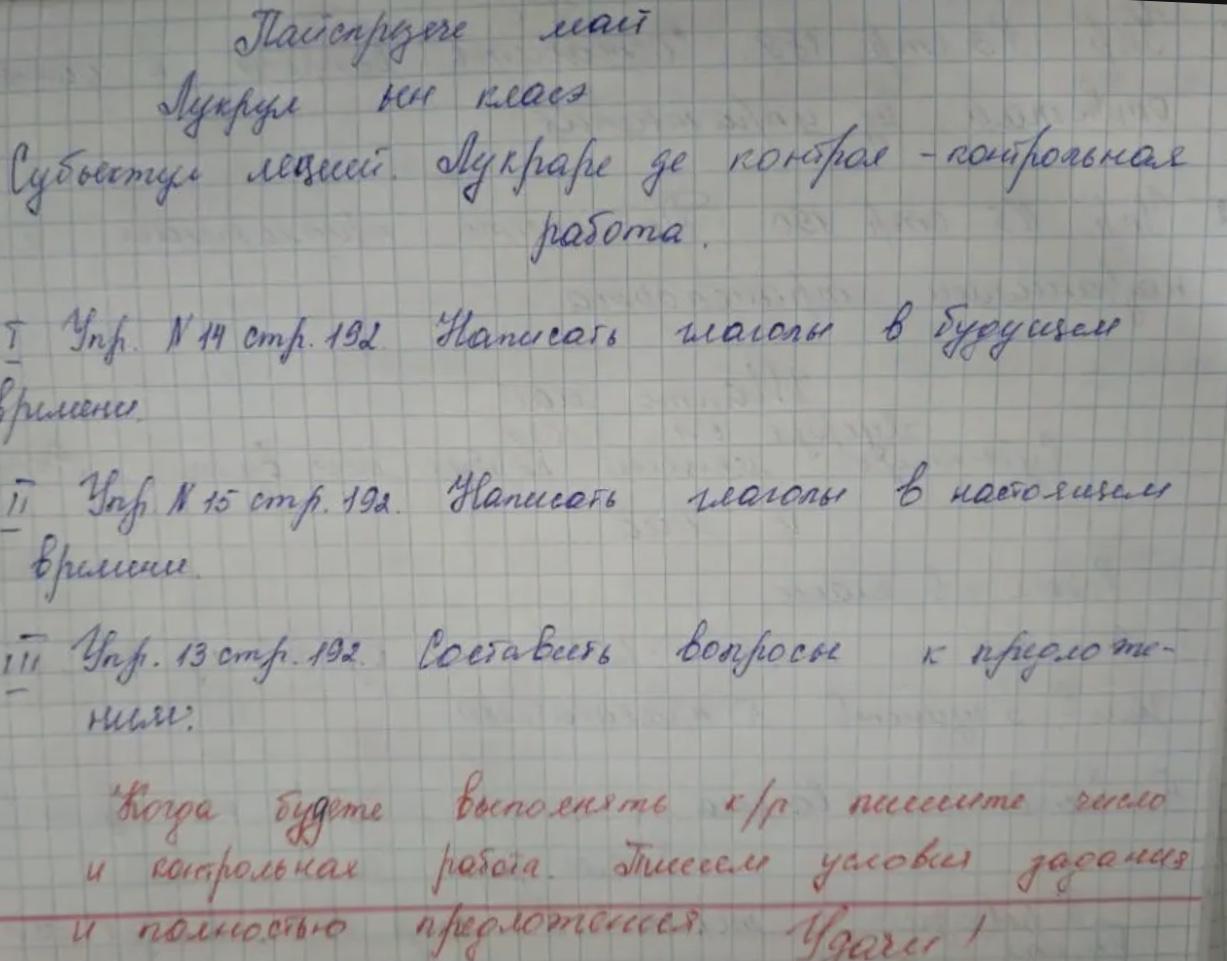 Пайспрезече май
Лукрул ын класэ
Субьектул лецией. Лукраре де контрол - контрольная
работа.
I Упр. N 14 стр. 192. Написать глаголы в будущем
времени.
II Упр N 15 стр. 192. Написать глаголы в настоящем
времени.
III Упр. 13 стр. 192. Составить вопросы к предложе-
ниям:
Когда будете выполнять к/р пишите число
и контрольная работа. Пишем условия задания
и полностью предложения. Удачи!